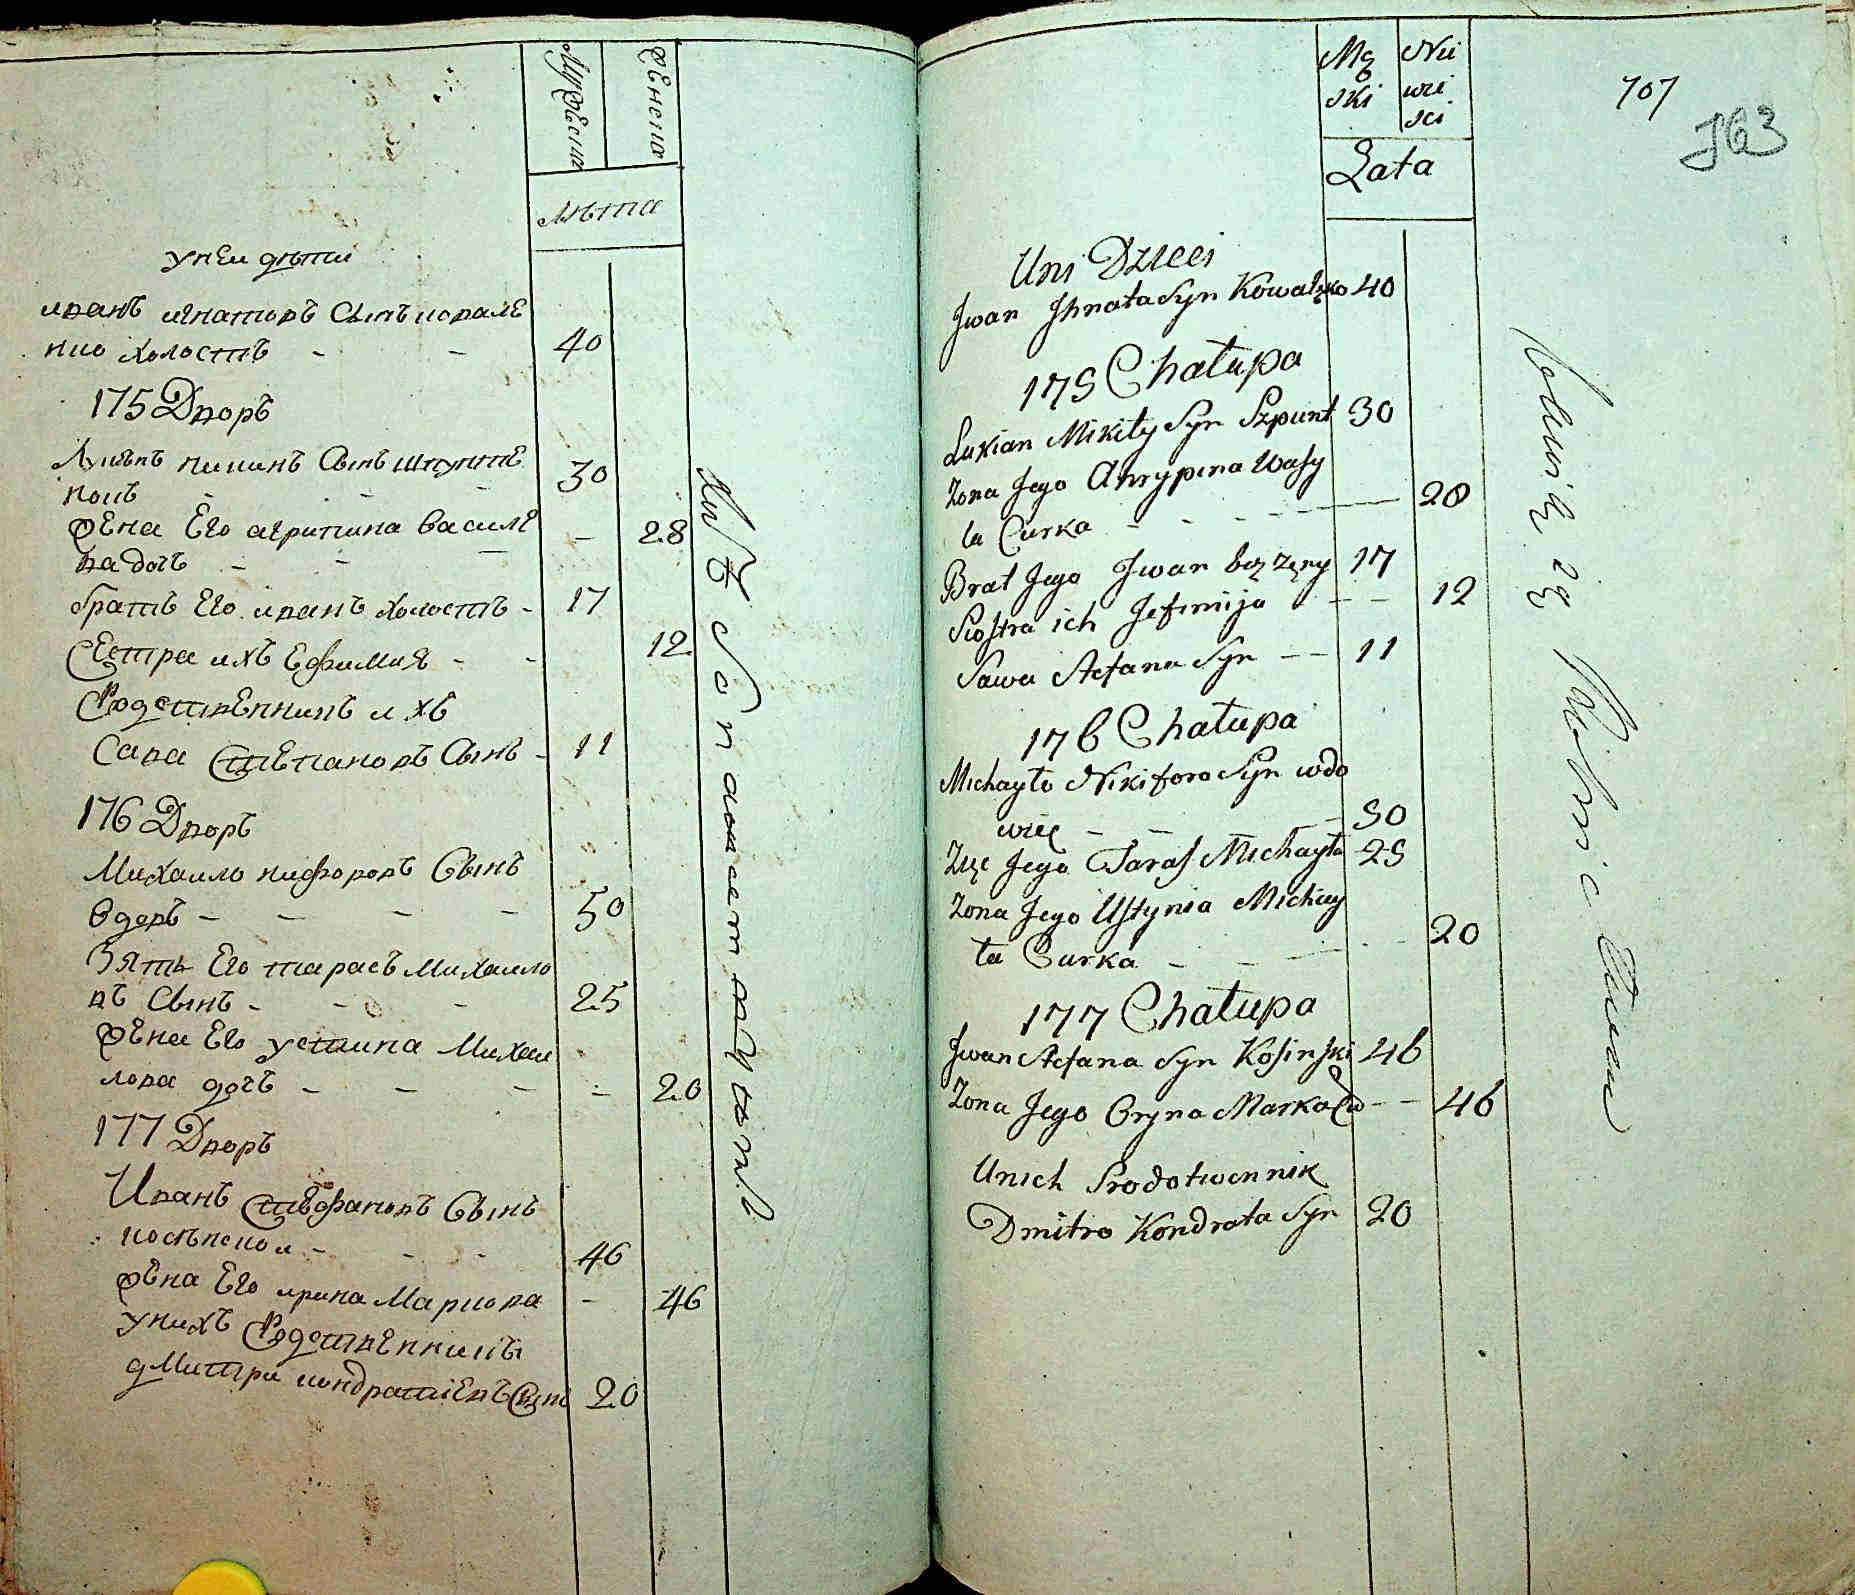 Мужеска
Женска
Лѣта
у неи дѣти
иванъ игнатовъ Сынъ ковале
нко холостъ - - 40
175 Дворъ
Лукянъ никит Сынъ шпунте
нокъ - - - 30
жена Его агрипина василе
ва дочь - - - 28
братъ Его иванъ холостъ - 17
Сестра ихъ Ефимия - - 12
Родственникъ ихъ
Сава Степановъ Сынъ - 11
176 Дворъ
Михаило никифоровъ Сынъ
вдовъ - - - - 50
Зять Его тарасъ Михаило
въ Сынъ - - - 25
жена Его устина Михаи
лова дочь - - - - 20
177 Дворъ
Иванъ Стефановъ Сынъ
- - - 46
жена Его ирина Маркова - 46
у нихъ Родственникъ
дмитри кондратіевъ Сынъ 20
Mę
ski
Nie
wie
sci
Lata
707
163
Uni Dzieci
Jwan Jhnata Syn Kowalęko 40
175 Chałupa
Lukian Mikity Syn Szpunt 30
Zona Jego Ahrypina Wasy
la Curka - - - - 28
Brat Jego Jwan bez zęny 17
Siostra ich Jefimija - - - 12
Sawa Stefana Syn - - 11
176 Chałupa
Michayło Nikifora Syn wdo
wiec - - - 50
Zięc Jego Taras Michayła 25
Zona Jego Ustynia Michay
ła Curka - - - - 20
177 Chałupa
Jwan Stefana Syn Kosinski 46
Zona Jego Oryna Marka Cu - - 46
Unich Srodstwennik
Dmitro Kondrata Syn 20